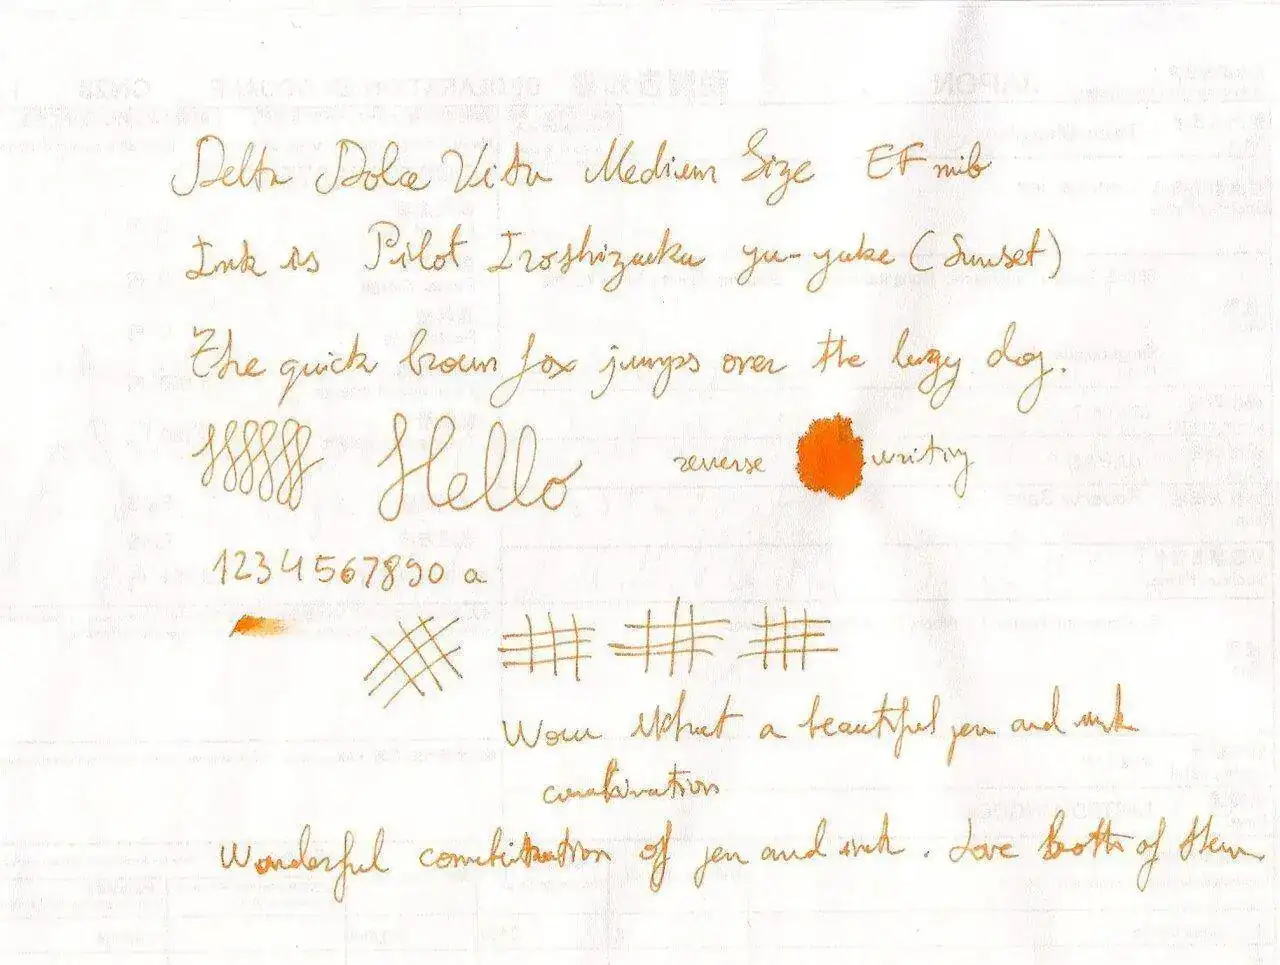 Delta Dolce Vita Medium Size EF nib
Ink is Pilot Iroshizuku yu-yake (Sunset)
The quick brown fox jumps over the lazy dog.
Hello reverse writing
1234567890 a
Wow What a beautiful pen and ink
combination
Wonderful combination of pen and ink. Love both of them